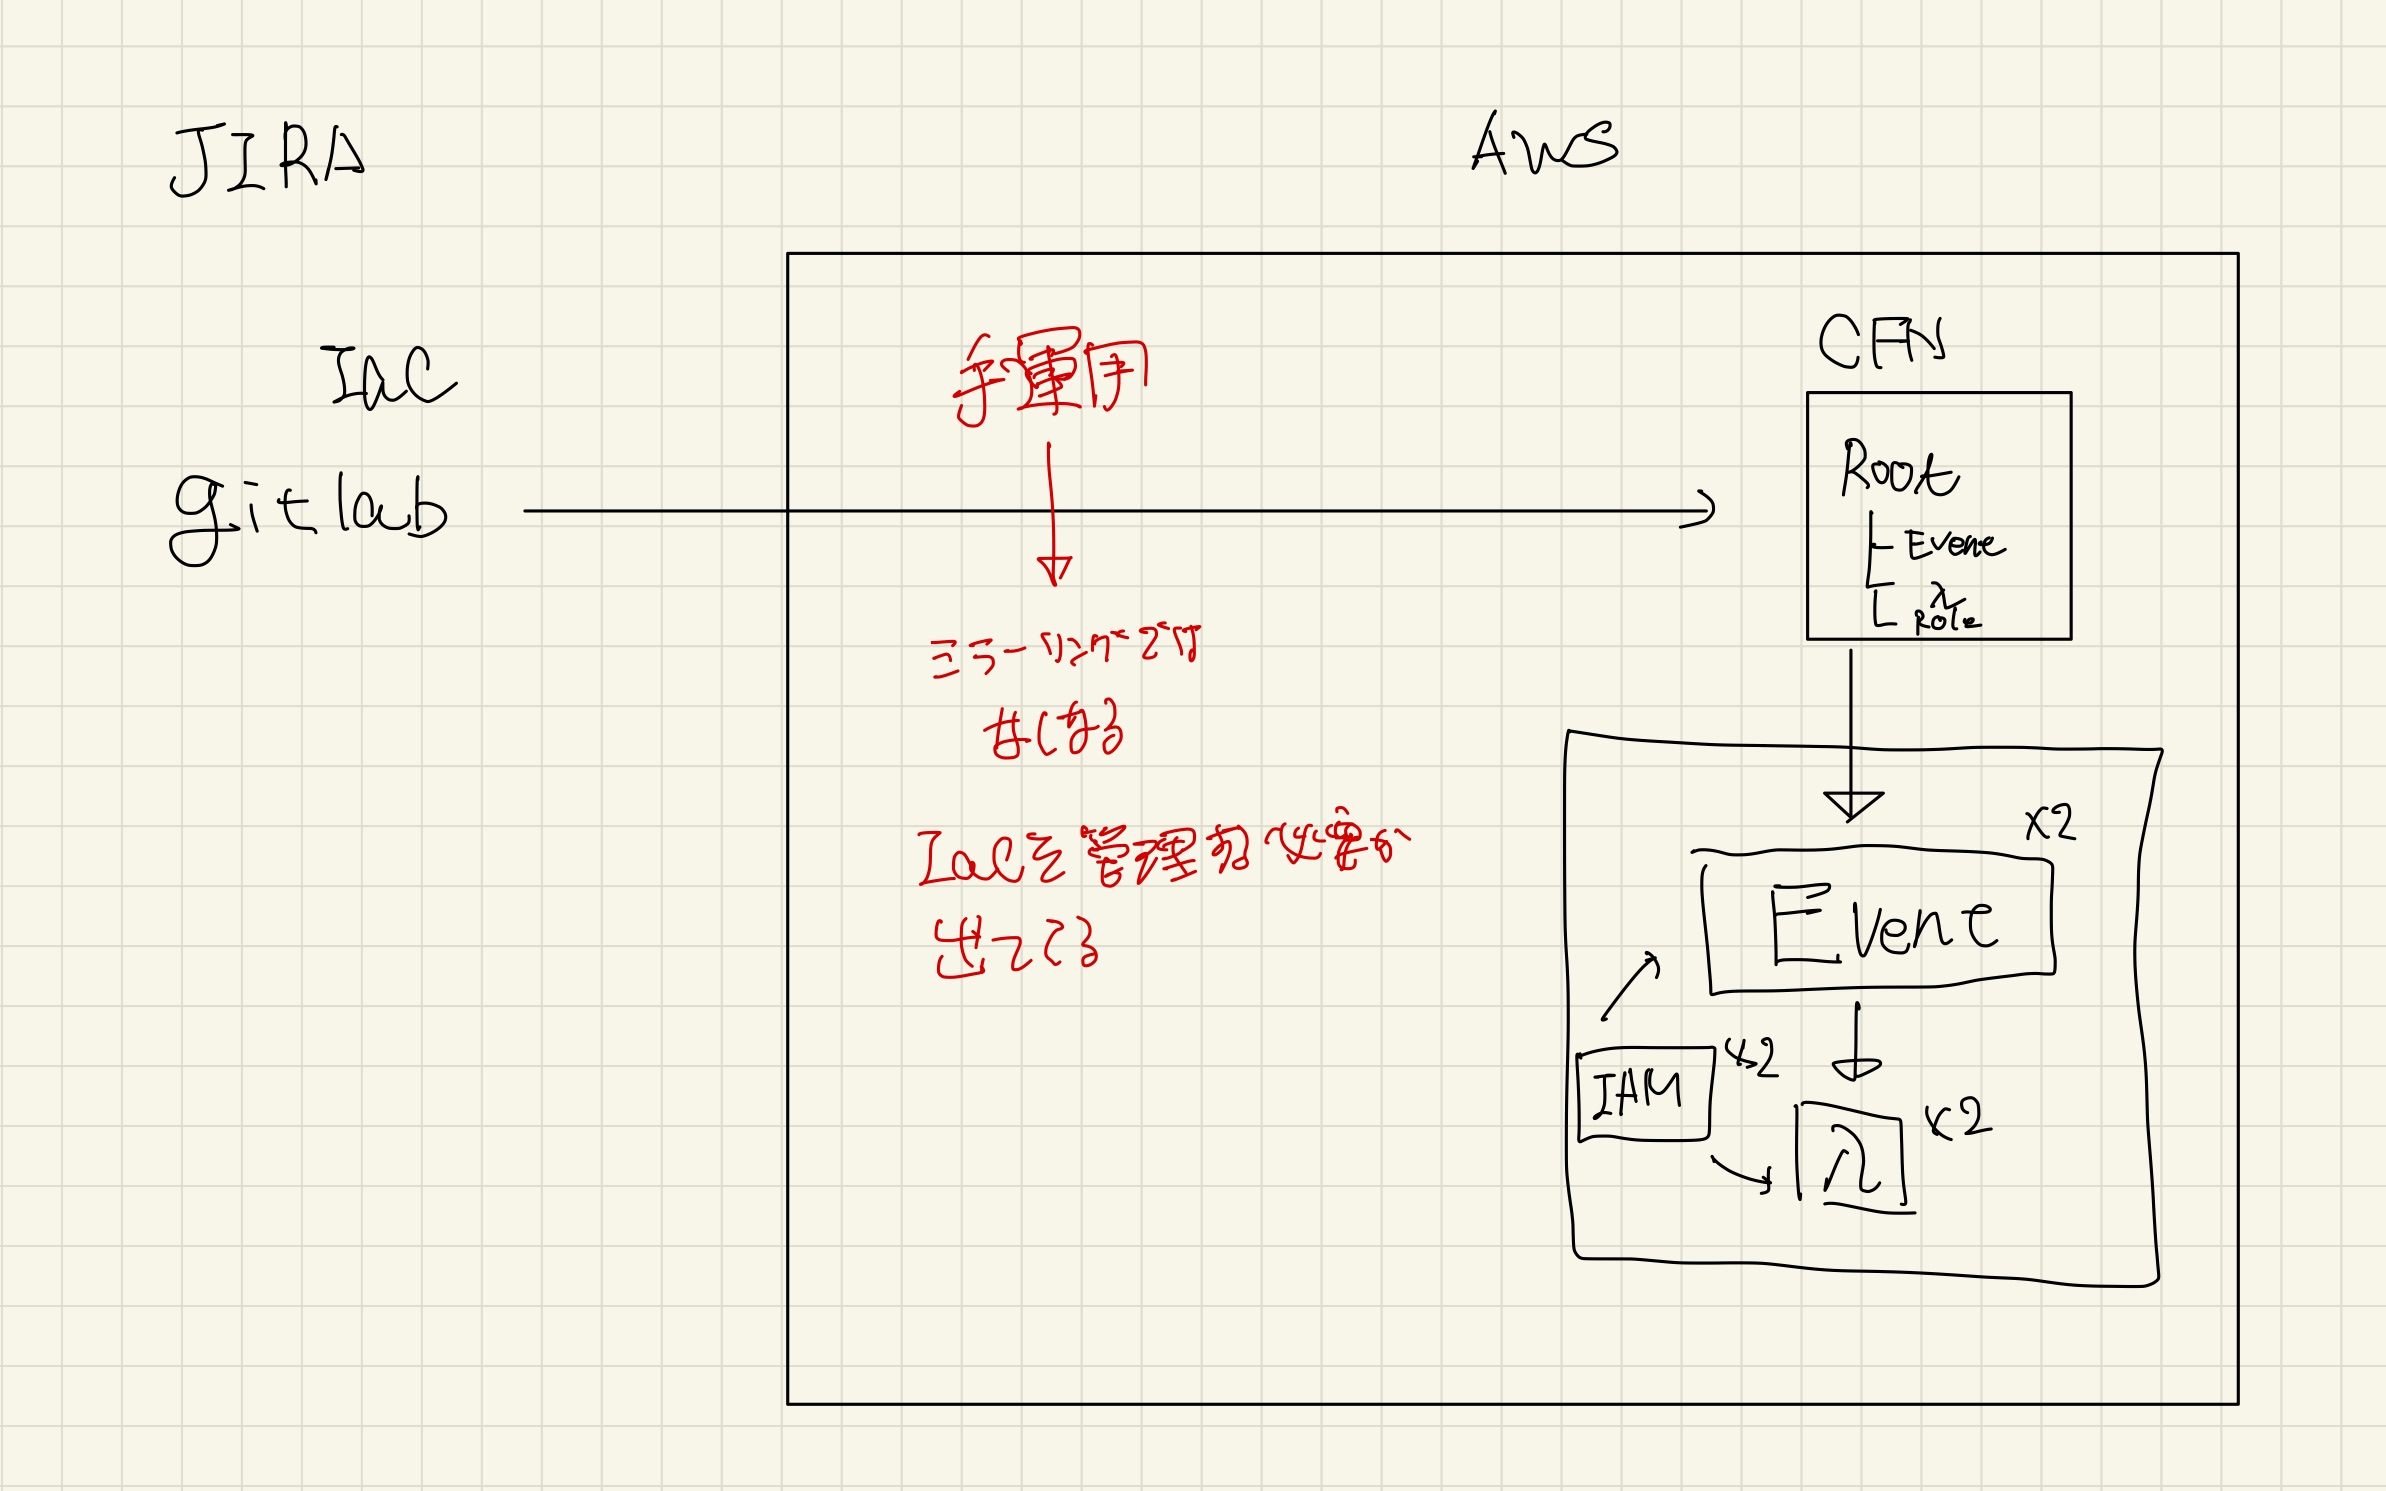 JIRA
AWS
IaC
gitlab
手運用
ミラーリングでは
なくなる
IaCを管理する必要が
出てくる
CFN
Root
Event
λ
Role
x2
Event
IAM
x2
λ
x2